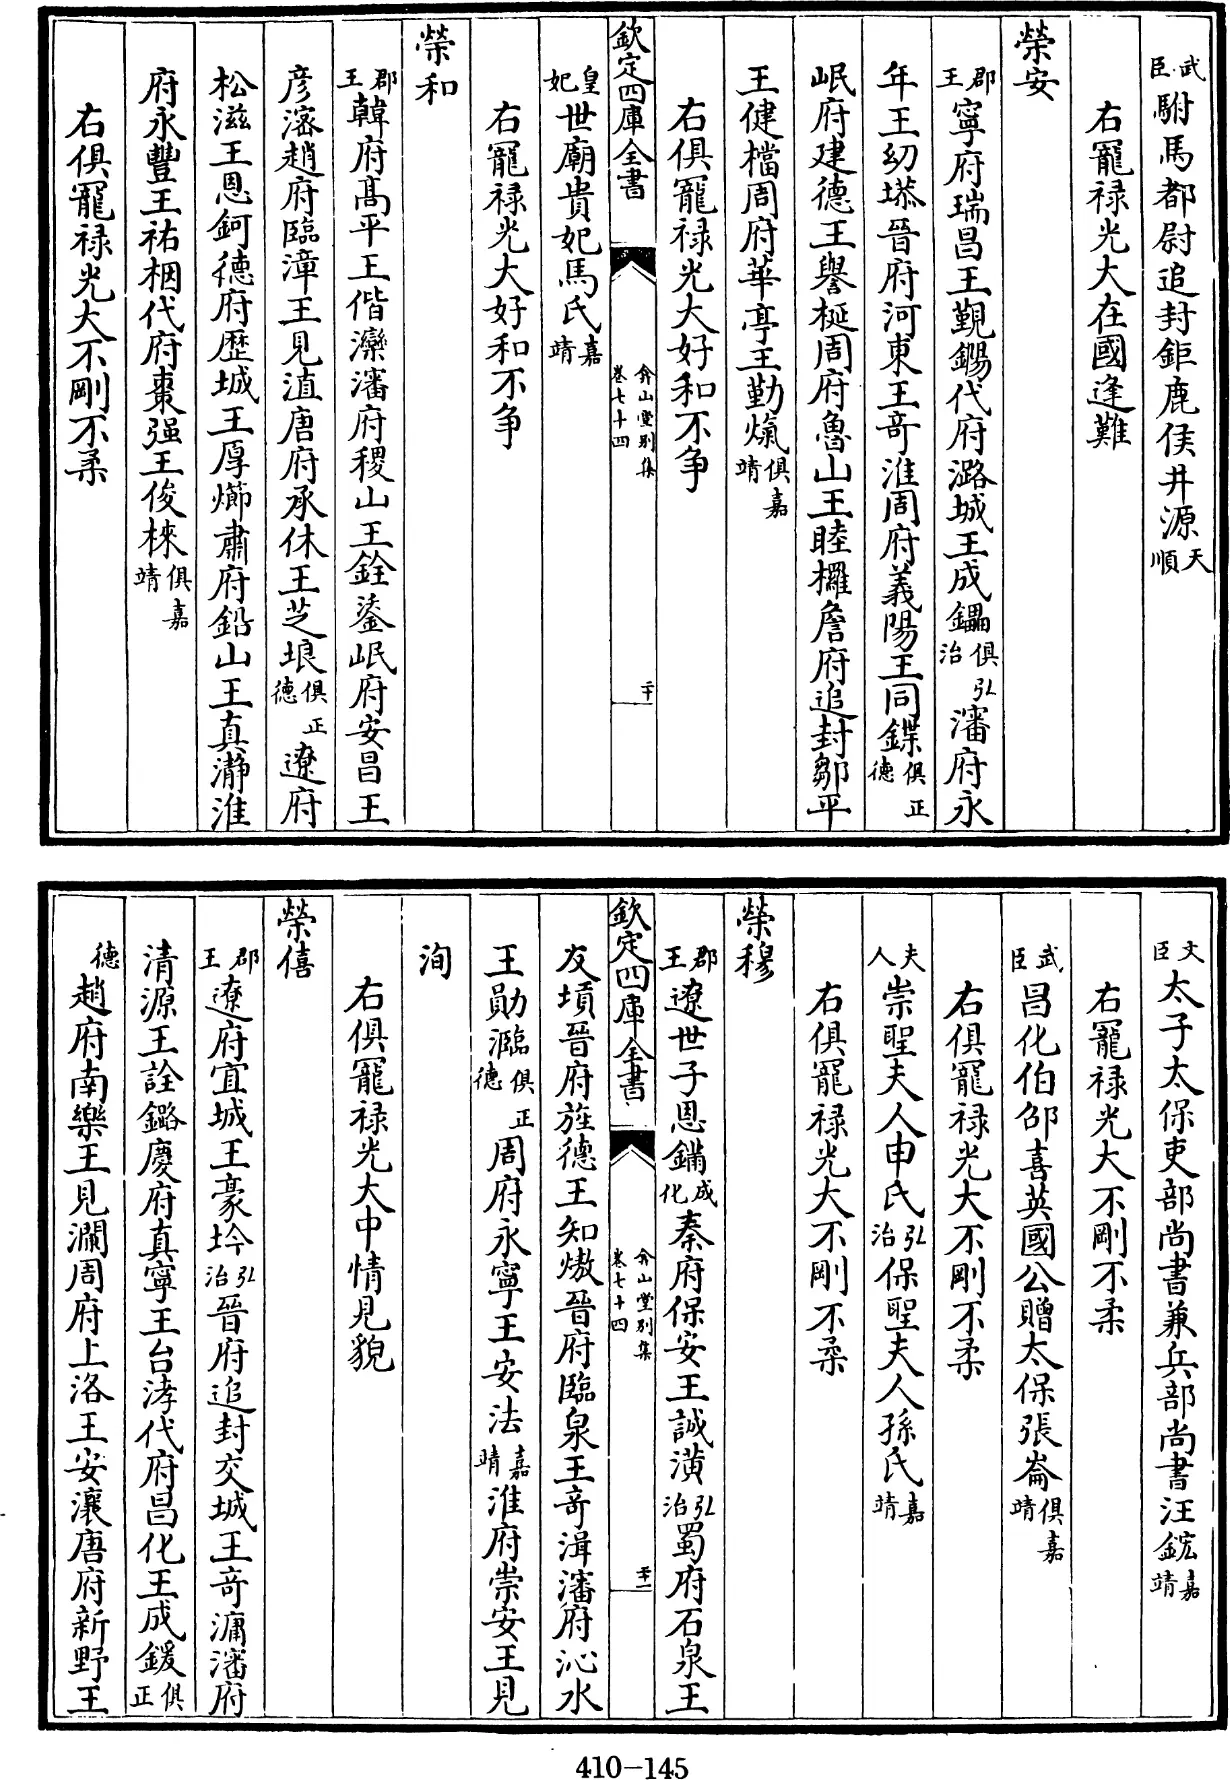 武臣駙馬都尉追封鉅鹿侯井源天順
右寵禄光大在國逢難
榮安
郡王寧府瑞昌王覲鐊代府潞城王成鑘俱弘治瀋府永
年王幼塨晉府河東王奇淮周府義陽王同鍱俱正德
岷府建德王譽梴周府魯山王睦㰚唐府追封鄒平
王健橏周府華亭王勤㷀俱嘉靖
右俱寵禄光大好和不争
欽定四庫全書 弇山堂别集 卷七十四 二十
皇妃世廟貴妃馬氏嘉靖
右寵禄光大好和不争
榮和
郡王韓府髙平王偕灤瀋府稷山王銓鋈岷府安昌王
彦滵趙府臨漳王見湞唐府承休王芝垠俱正德遼府
松滋王恩鈳德府歴城王厚㸅肅府鉛山王真瀞淮
府永豐王祐梱代府棗强王俊梾俱嘉靖
右俱寵禄光大不剛不柔
文臣太子太保吏部尚書兼兵部尚書汪鋐嘉靖
右寵禄光大不剛不柔
武臣昌化伯邵喜英國公贈太保張崙俱嘉靖
右俱寵禄光大不剛不柔
夫人崇聖夫人申氏弘治保聖夫人孫氏嘉靖
右俱寵禄光大不剛不柔
榮穆
郡王遼世子恩鏋成化秦府保安王誠潢弘治蜀府石泉王
友墳晉府旌德王知㷅晉府臨泉王奇湒瀋府沁水
欽定四庫全書 弇山堂别集 卷七十四 二十一
王勛漍俱正德周府永寧王安法嘉靖淮府崇安王見
洵
右俱寵禄光大中情見貌
榮僖
郡王遼府宜城王豪坅弘治晉府追封交城王奇㶲瀋府
清源王詮鏴慶府真寧王台涍代府昌化王成鍰俱正
德趙府南樂王見瀾周府上洛王安瀼唐府新野王
410-145